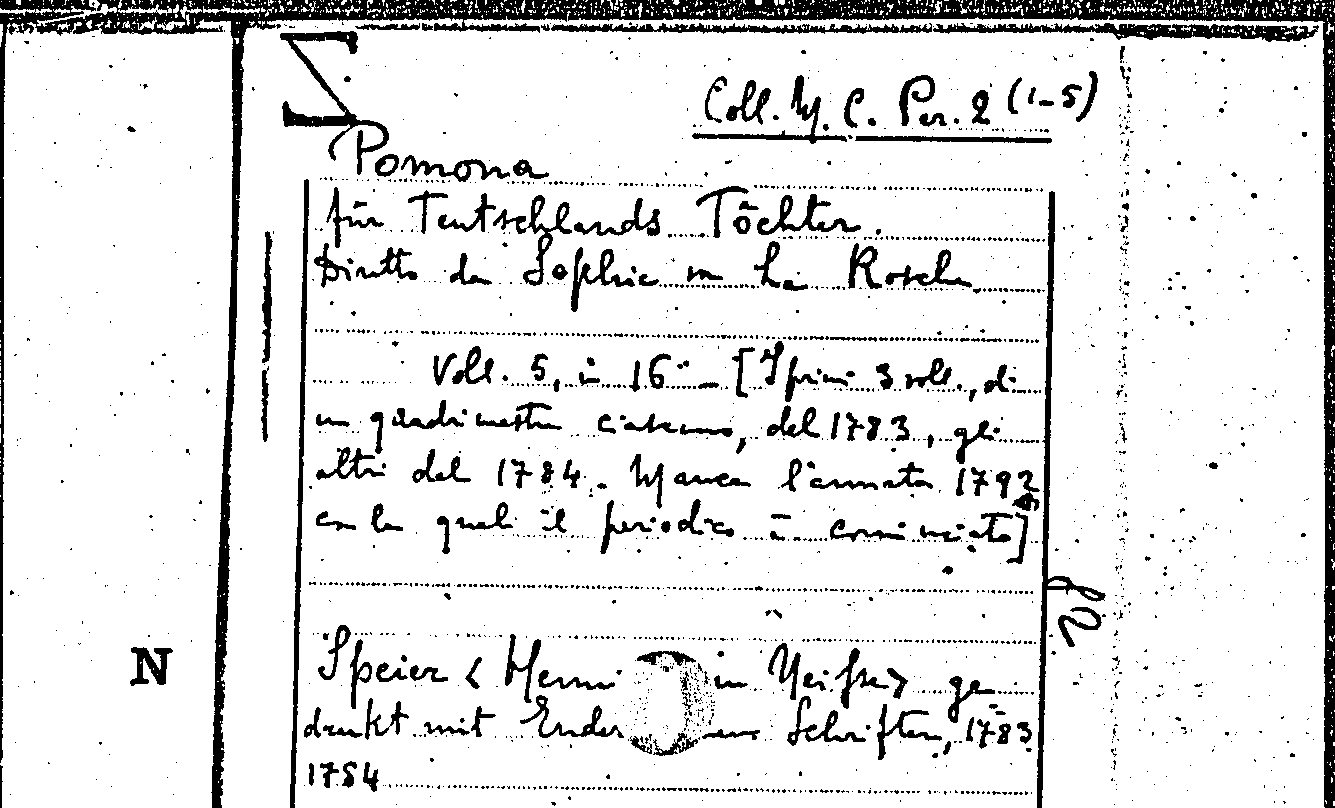 Coll. M. C. Per. 2 (1-5)
Pomona
für Teutschlands Töchter.
Diretto da Sophie von La Roche
Voll. 5, in 16° - [I primi 3 voll., di
un quadrimestre ciascuno, del 1783, gli
altri del 1784. Manca l'annata 1792
con la quale il periodico è cominciato]
Speier < in > ge
druckt mit Schriften, 1783
1784
N